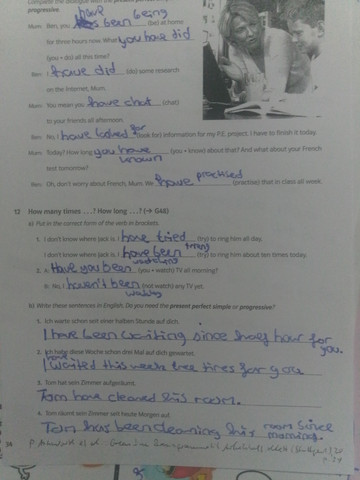 Complete the dialogue with the present perfect
progressive.
Mum: Ben, you have been being (be) at home
for three hours now. What you have did
(you • do) all this time?
Ben: I have did (do) some research
on the Internet, Mum.
Mum: You mean you have chat (chat)
to your friends all afternoon.
Ben: No, I have looked for (look for) information for my P.E. project. I have to finish it today.
Mum: Today? How long you have known (you • know) about that? And what about your French
test tomorrow?
Ben: Oh, don't worry about French, Mum. We have practised (practise) that in class all week.
12 How many times ...? How long ...? (→ G48)
a) Put in the correct form of the verb in brackets.
1. I don't know where Jack is. I have tried (try) to ring him all day.
I don't know where Jack is. I have been trying (try) to ring him about ten times today.
2. A: Have you been watched (you • watch) TV all morning?
B: No, I haven't been watching (not watch) any TV yet.
b) Write these sentences in English. Do you need the present perfect simple or progressive?
1. Ich warte schon seit einer halben Stunde auf dich.
I have been waiting since half hour for you.
2. Ich habe diese Woche schon drei Mal auf dich gewartet.
I have waited this week tree times for you
3. Tom hat sein Zimmer aufgeräumt.
Tom have cleaned his room.
4. Tom räumt sein Zimmer seit heute Morgen auf.
Tom has been cleaning his room since morning.